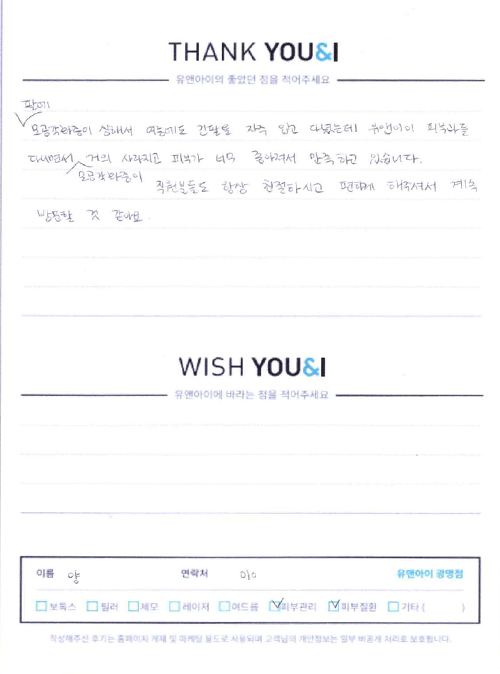 THANK YOU&I
유앤아이의 좋았던 점을 적어주세요
팔에
모공각화증이 심해서 여름에도 긴팔을 자주 입고 다녔는데 유앤아이 피부과를
다니면서 거의 사라지고 피부가 너무 좋아져서 만족하고 있습니다.
모공각화증이
직원분들도 항상 친절하시고 편하게 해주셔서 계속
방문할 것 같아요.
WISH YOU&I
유앤아이에 바라는 점을 적어주세요
이름 양 연락처 010 유앤아이 광명점
보톡스 필러 제모 레이저 여드름 피부관리 피부질환 기타 ( )
작성해주신 후기는 홈페이지 게재 및 마케팅 용도로 사용되며 고객님의 개인정보는 일부 비공개 처리로 보호됩니다.